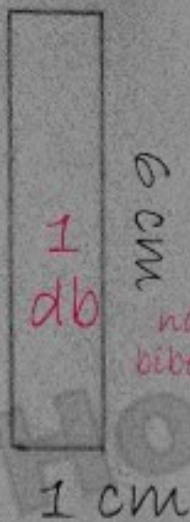 1
db
6 cm
1 cm